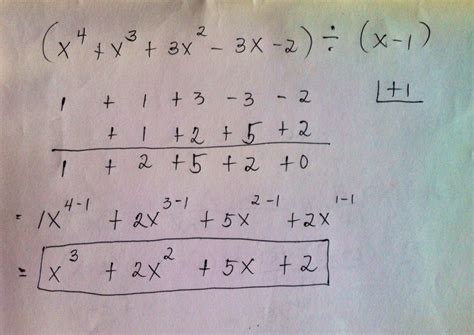 (x⁴ + x³ + 3x² - 3x - 2) ÷ (x-1)
1 + 1 + 3 - 3 - 2 +1
+ 1 + 2 + 5 + 2
1 + 2 + 5 + 2 + 0
= 1x⁴⁻¹ + 2x³⁻¹ + 5x²⁻¹ + 2x¹⁻¹
= x³ + 2x² + 5x + 2